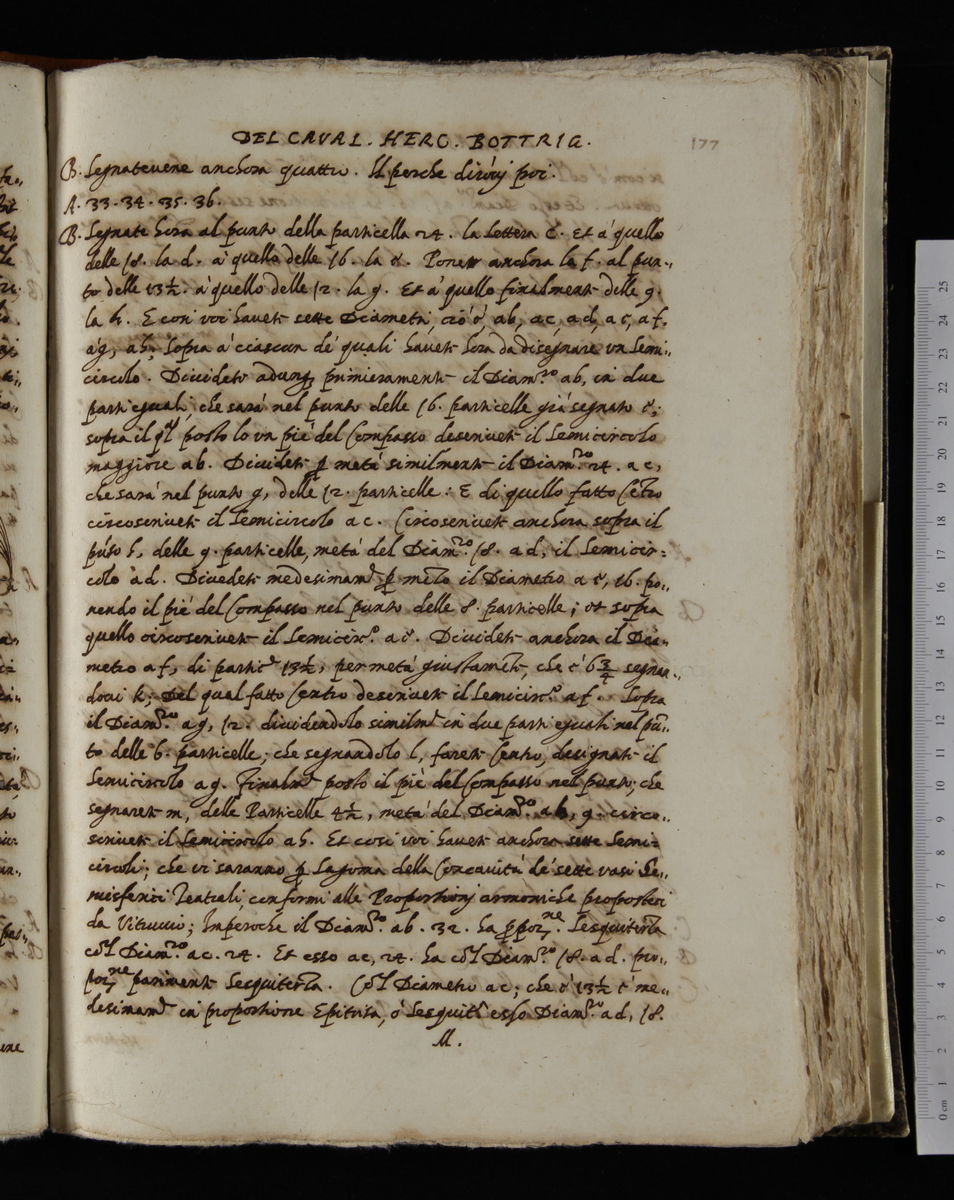 DEL CAVAL. HERC. BOTTRIG.
177
B. Segnatevene anchora quattro. Il perche dirovvj poi.
A. 33. 34. 35. 36.
B. Segnate hora al punto della particella 24. la lettera c. Et à quello
delle 18. la d. à quello delle 16. la e. Ponete anchora la f. al pun-
to delle 13½. à quello delle 12. la g. Et à quello finalmente delle 9.
la h. E con voi havete sette Diametri, cio è, ab, ac, ad, ae, af,
ag, ah; sopra à ciascun de' quali havete hora da disegnare un Semi-
circolo. Dividete adunq; primieramente il Diam.ro ab, in due
parti eguali, che sarà nel punto delle 16. particelle già segnato e;
sopra il ql posto lo un piè del Compasso descrivete il Semicircolo
maggiore ab. Dividete p metà similmente il Diam.ro 24. ac,
che sarà nel punto g, delle 12. particelle: E di quello fatto Cẽtro
circoscrivete il Semicircolo ac. Circoscrivete anchora sopra il
pũto h, delle 9. particelle, metà del Diam.ro 18. ad, il Semicir-
colo ad. Dividete medesimamte p mezo il Diametro ae, 16. po-
nendo il piè del Compasso nel punto delle 8. particelle; et sopra
quello circoscrivete il Semicirc.o ae. Dividete anchora il Dia-
metro af, di partic.e 13½, per metà giustamẽte, che è 6¾ segnan-
dovi k; Del qual fatto Centro descrivete il Semicirc.o af. Sopra
il Diam.ro ag, 12. dividendolo similmte in due parti eguali nel pũ-
to delle 6. particelle; che segnandolo l, farete Centro, designate il
Semicircolo ag. Finalmte posto il piè del Compasso nel punto; che
segnarete m, delle Particelle 4½, metà del Diam.ro ah, 9. circo-
scrivete il Semicircolo ah. Et così voi havete anchora sette Semi-
circoli; che vi saranno p Sagoma della Concavità de' sette vasi He-
misferici Teatrali, conformi alle Proportionj armoniche proposteci
da Vitruvio; Imperoche il Diam.ro ab. 32. ha ppor.ne Sesquitertia
cõl Diam.ro ac. 24. Et esso ac, 24. ha cõl Diam.ro 18. ad. pro-
por.ne pariment Sesquitertia. Cõl Diametro ac; che è 13½ è me-
desimamte in proportione Epitrita, ò Sesquitta esso Diam.ro ad, 18.
M.